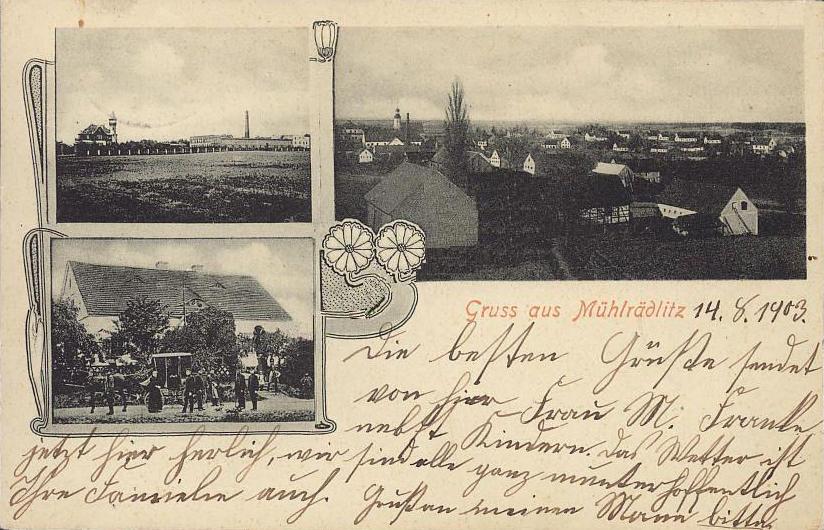 Gruss aus Mühlrädlitz 14. 8. 1903.
Die besten Grüße sendet
von hier Frau M. Franke
nebst Kindern. Das Wetter ist
jetzt hier herlich, wir sind alle ganz munter hoffentlich
Ihre Famielie auch. Grußan meinen Mann bitte